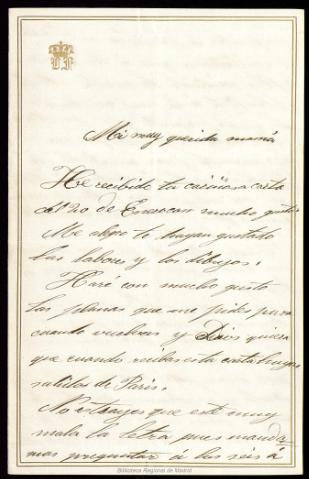 Mi muy querida mamá
He recibido tu cariñosa carta
del 20 de Enero con mucho gusto
Me alegro te hayan gustado
las labores y los dibujos.
Haré con mucho gusto
las planas que me pides para
cuando vuelvas y Dios quiera
que cuando recibas esta carta hayas
salido de Paris.
No estrañes que esté muy
mala la letra pues manda-
mas preguntar á las seis á
Biblioteca Regional de Madrid